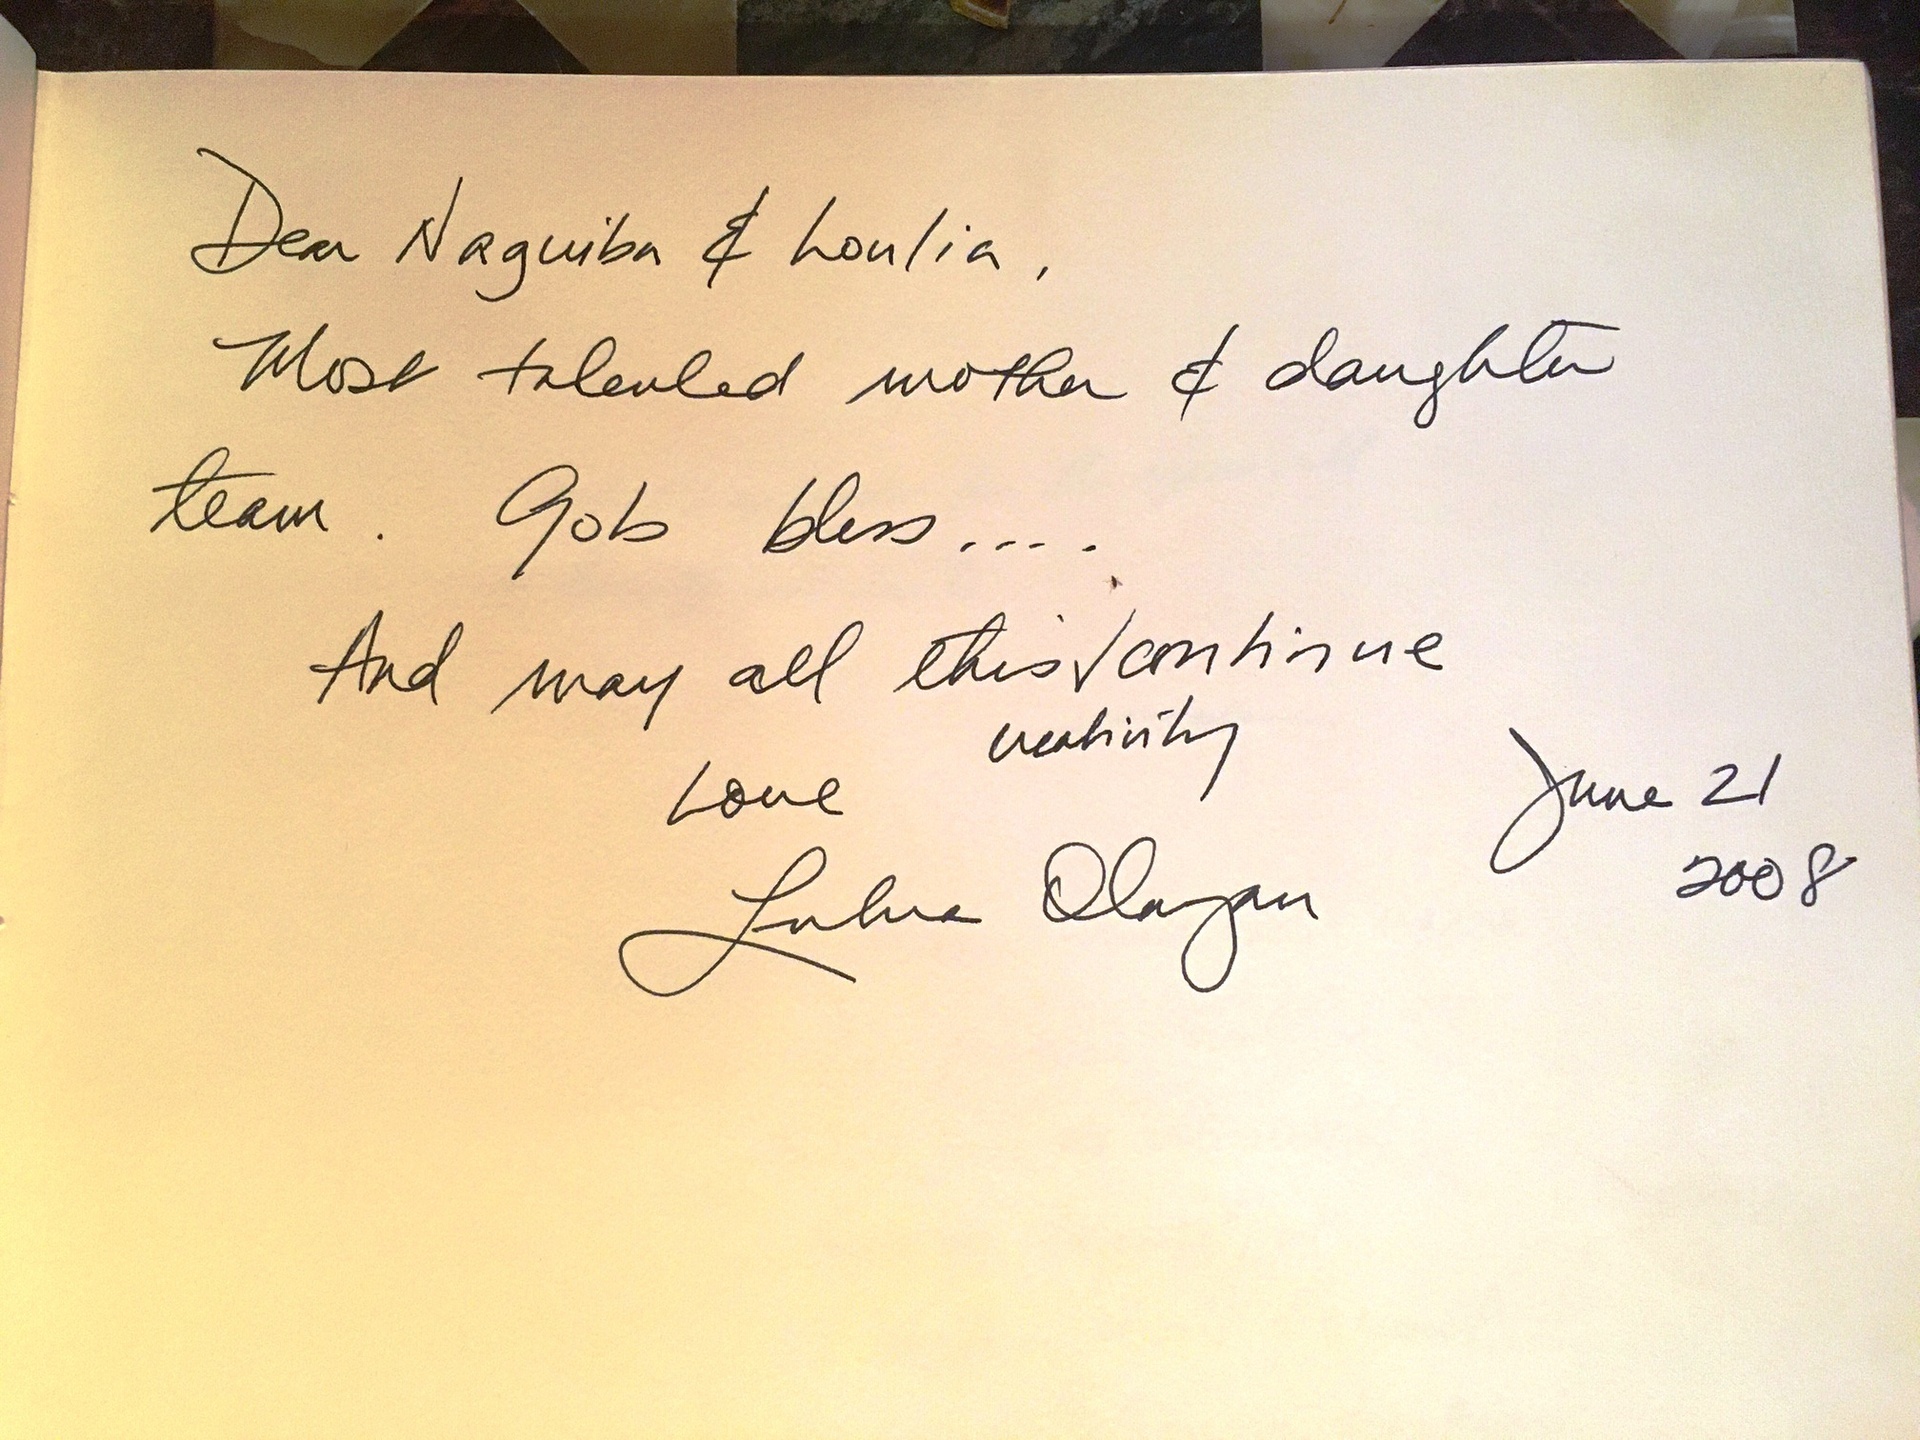 Dear Naguiba & Loulia,
Most talented mother & daughter
team. God bless....
And may all this √ continue
creativity
Love
Lubna Olayan
June 21
2008